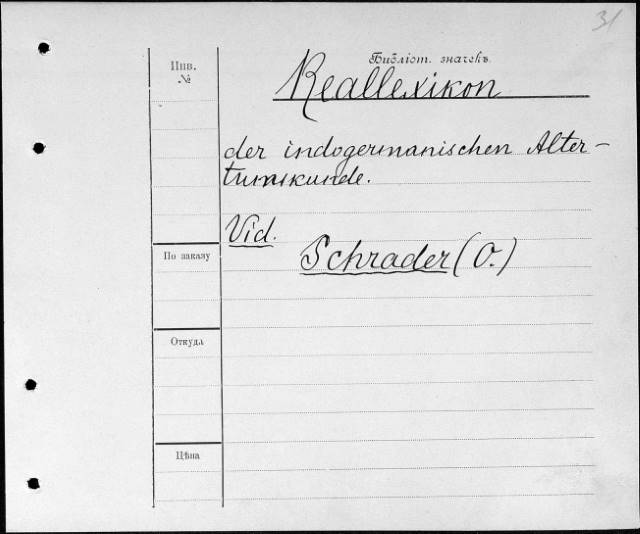 31
Инв.
№
Библіот. значекъ
Reallexikon
der indogermanischen Alter-
tumskunde.
Vid.
Schrader (O.)
По заказу
Откуда
Цѣна